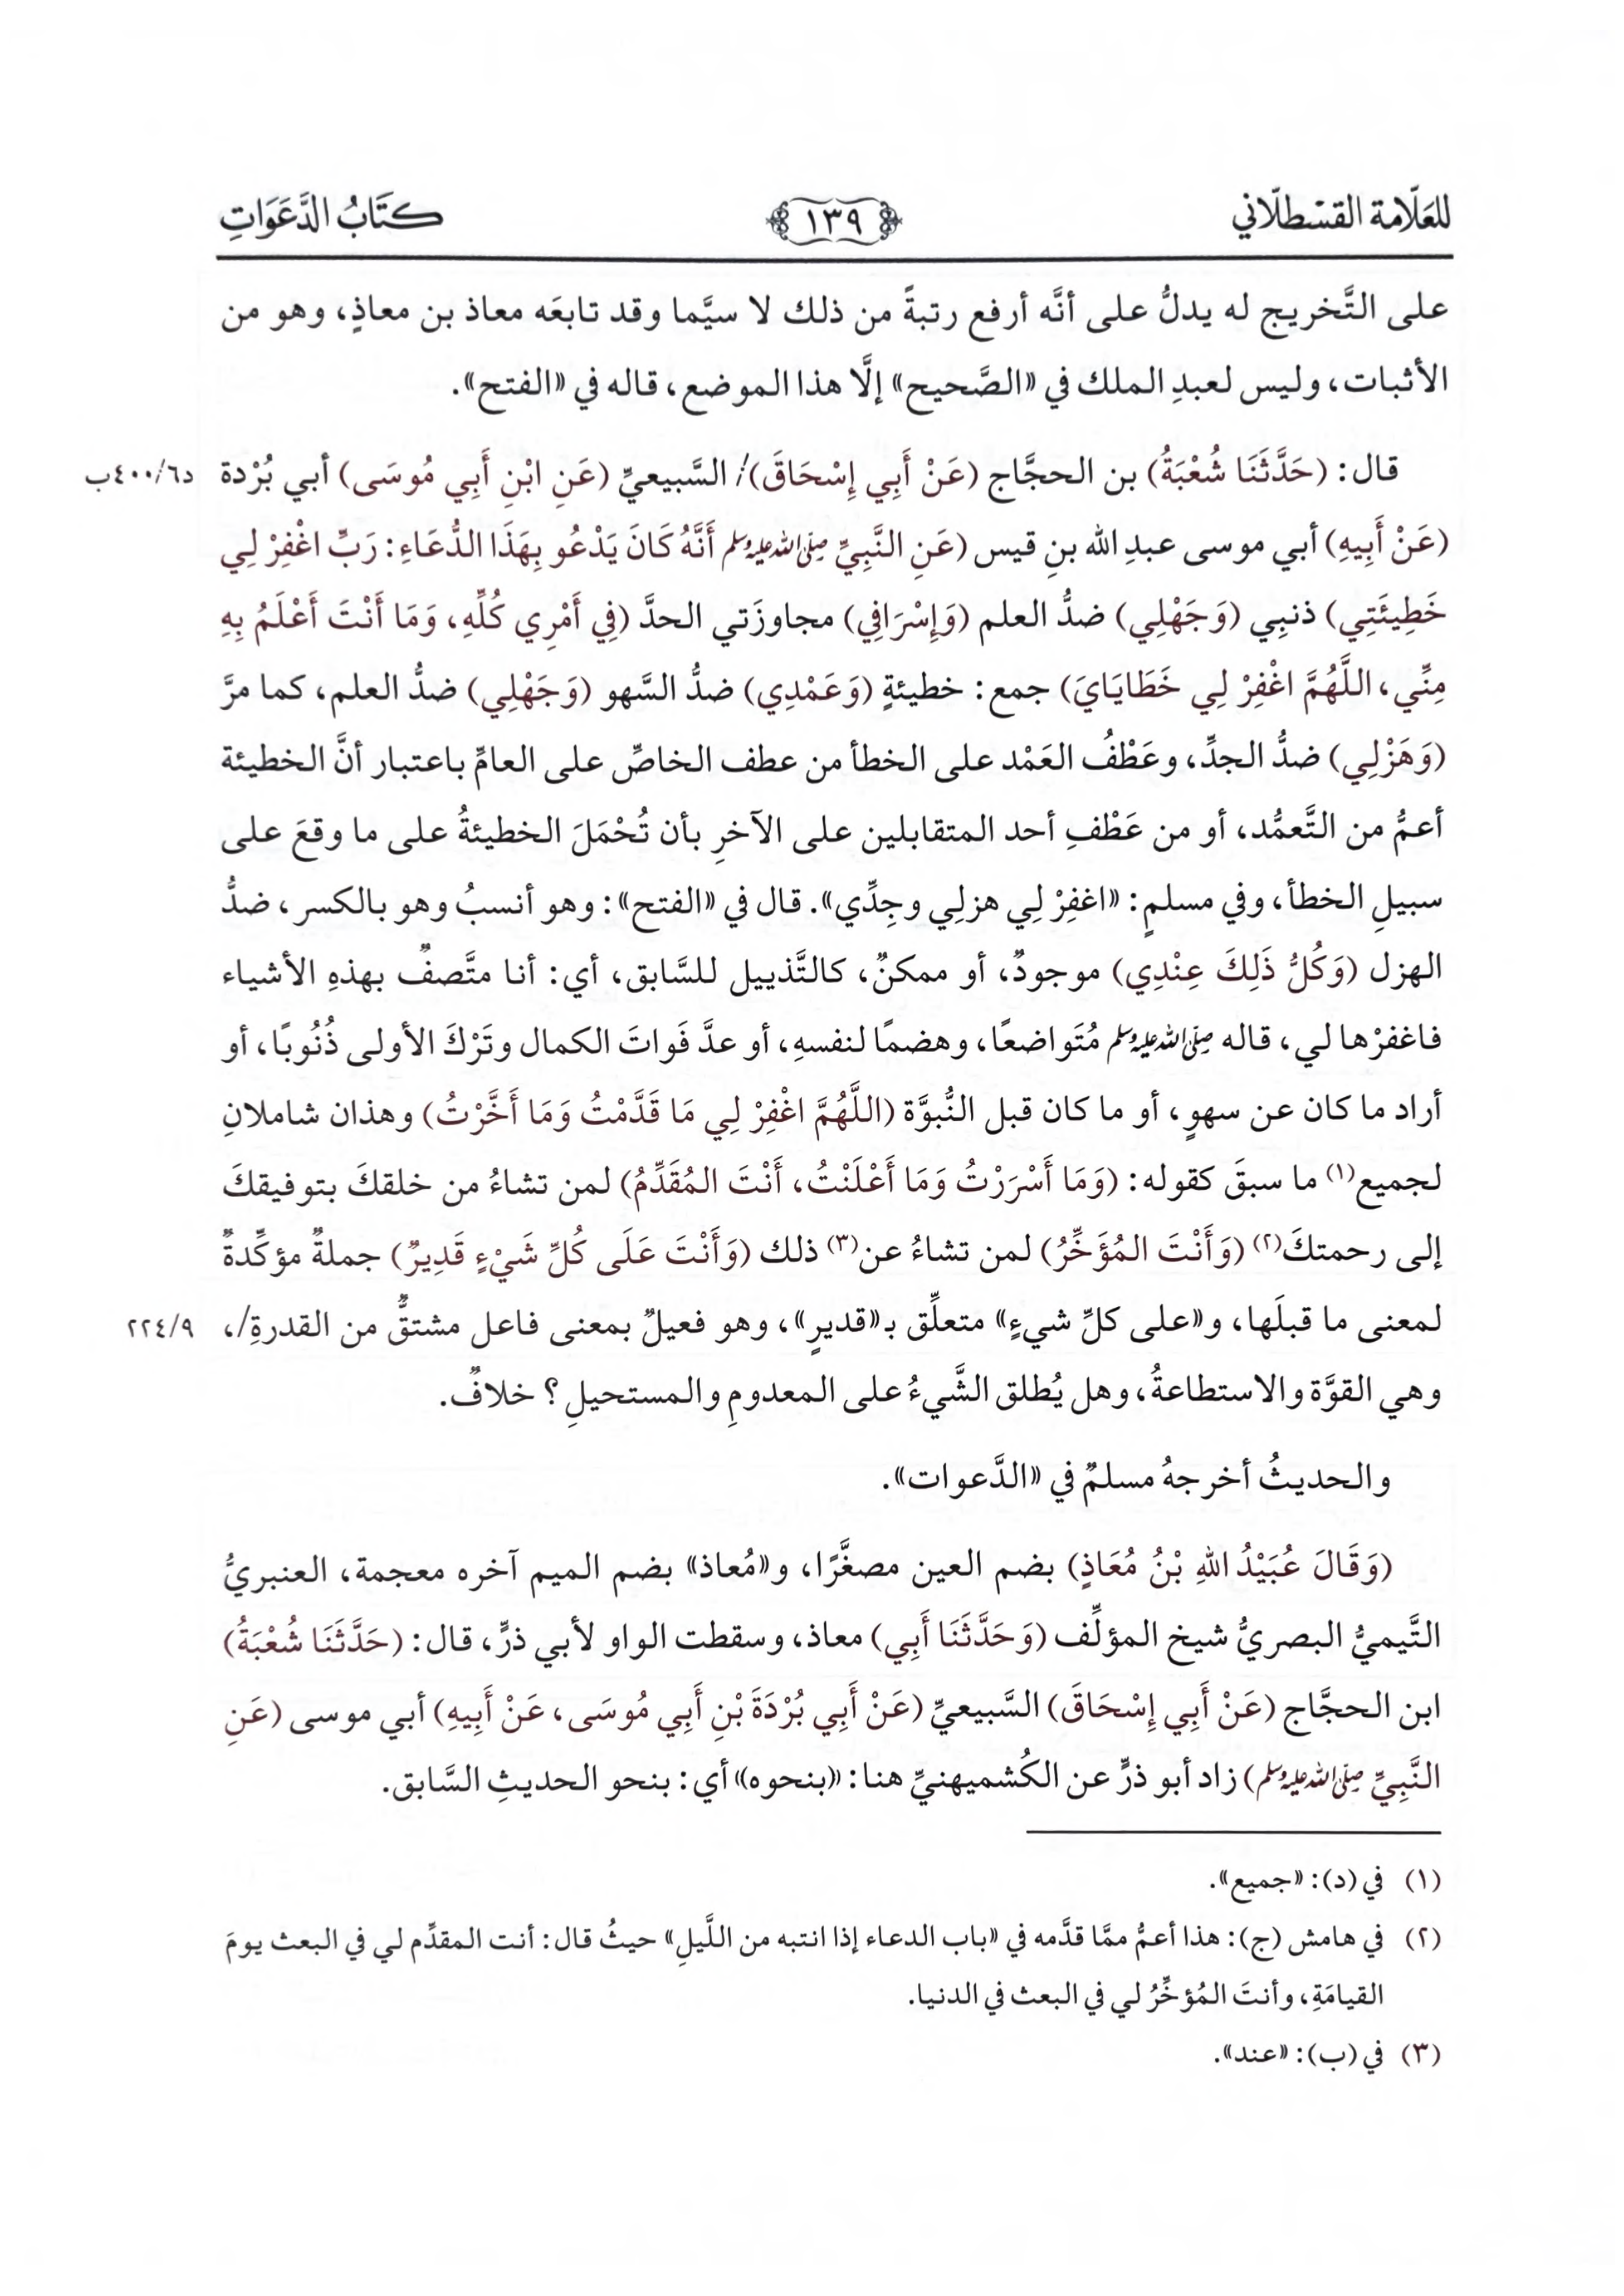 للعلّامة القسطلّاني ١٣٩ كتَابُ الدَّعَوَاتِ
على التَّخريج له يدلُّ على أنَّه أرفع رتبةً من ذلك لا سيَّما وقد تابعَه معاذ بن معاذٍ، وهو من
الأثبات، وليس لعبدِ الملك في «الصَّحيح» إلَّا هذا الموضع، قاله في «الفتح».
قال: (حَدَّثَنَا شُعْبَةُ) بن الحجَّاج (عَنْ أَبِي إِسْحَاقَ)/ السَّبيعيِّ (عَنِ ابْنِ أَبِي مُوسَى) أبي بُرْدة د٤٠٠/٦ب
(عَنْ أَبِيهِ) أبي موسى عبدِ الله بنِ قيس (عَنِ النَّبِيِّ صلى الله عليه وسلم أَنَّهُ كَانَ يَدْعُو بِهَذَا الدُّعَاءِ: رَبِّ اغْفِرْ لِي
خَطِيئَتِي) ذنبِي (وَجَهْلِي) ضدُّ العلم (وَإِسْرَافِي) مجاوزَتي الحدَّ (فِي أَمْرِي كُلِّهِ، وَمَا أَنْتَ أَعْلَمُ بِهِ
مِنِّي، اللَّهُمَّ اغْفِرْ لِي خَطَايَايَ) جمع: خطيئةٍ (وَعَمْدِي) ضدُّ السَّهو (وَجَهْلِي) ضدُّ العلم، كما مرَّ
(وَهَزْلِي) ضدُّ الجدِّ، وعَطْفُ العَمْد على الخطأ من عطف الخاصِّ على العامِّ باعتبار أنَّ الخطيئة
أعمُّ من التَّعمُّد، أو من عَطْفِ أحد المتقابلين على الآخرِ بأن تُحْمَلَ الخطيئةُ على ما وقعَ على
سبيلِ الخطأ، وفي مسلمٍ: «اغفِرْ لِي هزلِي وجِدِّي». قال في «الفتح»: وهو أنسبُ وهو بالكسر، ضدُّ
الهزل (وَكُلُّ ذَلِكَ عِنْدِي) موجودٌ، أو ممكنٌ، كالتَّذييل للسَّابق، أي: أنا متَّصفٌ بهذهِ الأشياء
فاغفرْها لي، قاله صلى الله عليه وسلم مُتَواضعًا، وهضمًا لنفسهِ، أو عدَّ فَواتَ الكمال وتَرْكَ الأولى ذُنُوبًا، أو
أراد ما كان عن سهوٍ، أو ما كان قبل النُّبوَّة (اللَّهُمَّ اغْفِرْ لِي مَا قَدَّمْتُ وَمَا أَخَّرْتُ) وهذان شاملانِ
لجميع(١) ما سبقَ كقوله: (وَمَا أَسْرَرْتُ وَمَا أَعْلَنْتُ، أَنْتَ المُقَدِّمُ) لمن تشاءُ من خلقكَ بتوفيقكَ
إلى رحمتكَ(٢) (وَأَنْتَ المُؤَخِّرُ) لمن تشاءُ عن(٣) ذلك (وَأَنْتَ عَلَى كُلِّ شَيْءٍ قَدِيرٌ) جملةٌ مؤكِّدةٌ
لمعنى ما قبلَها، و«على كلِّ شيءٍ» متعلِّق بـ«قديرٍ»، وهو فعيلٌ بمعنى فاعل مشتقٌّ من القدرةِ/، ٢٢٤/٩
وهي القوَّة والاستطاعةُ، وهل يُطلق الشَّيءُ على المعدومِ والمستحيلِ؟ خلافٌ.
والحديثُ أخرجهُ مسلمٌ في «الدَّعوات».
(وَقَالَ عُبَيْدُ اللهِ بْنُ مُعَاذٍ) بضم العين مصغَّرًا، و«مُعاذ» بضم الميم آخره معجمة، العنبريُّ
التَّيميُّ البصريُّ شيخ المؤلِّف (وَحَدَّثَنَا أَبِي) معاذ، وسقطت الواو لأبي ذرٍّ، قال: (حَدَّثَنَا شُعْبَةُ)
ابن الحجَّاج (عَنْ أَبِي إِسْحَاقَ) السَّبيعيِّ (عَنْ أَبِي بُرْدَةَ بْنِ أَبِي مُوسَى، عَنْ أَبِيهِ) أبي موسى (عَنِ
النَّبِيِّ صلى الله عليه وسلم) زاد أبو ذرٍّ عن الكُشميهنيِّ هنا: «بنحوه» أي: بنحو الحديثِ السَّابق.
(١) في (د): «جميع».
(٢) في هامش (ج): هذا أعمُّ ممَّا قدَّمه في «باب الدعاء إذا انتبه من اللَّيلِ» حيثُ قال: أنت المقدِّم لي في البعث يومَ
القيامَةِ، وأنتَ المُؤخِّرُ لي في البعث في الدنيا.
(٣) في (ب): «عند».